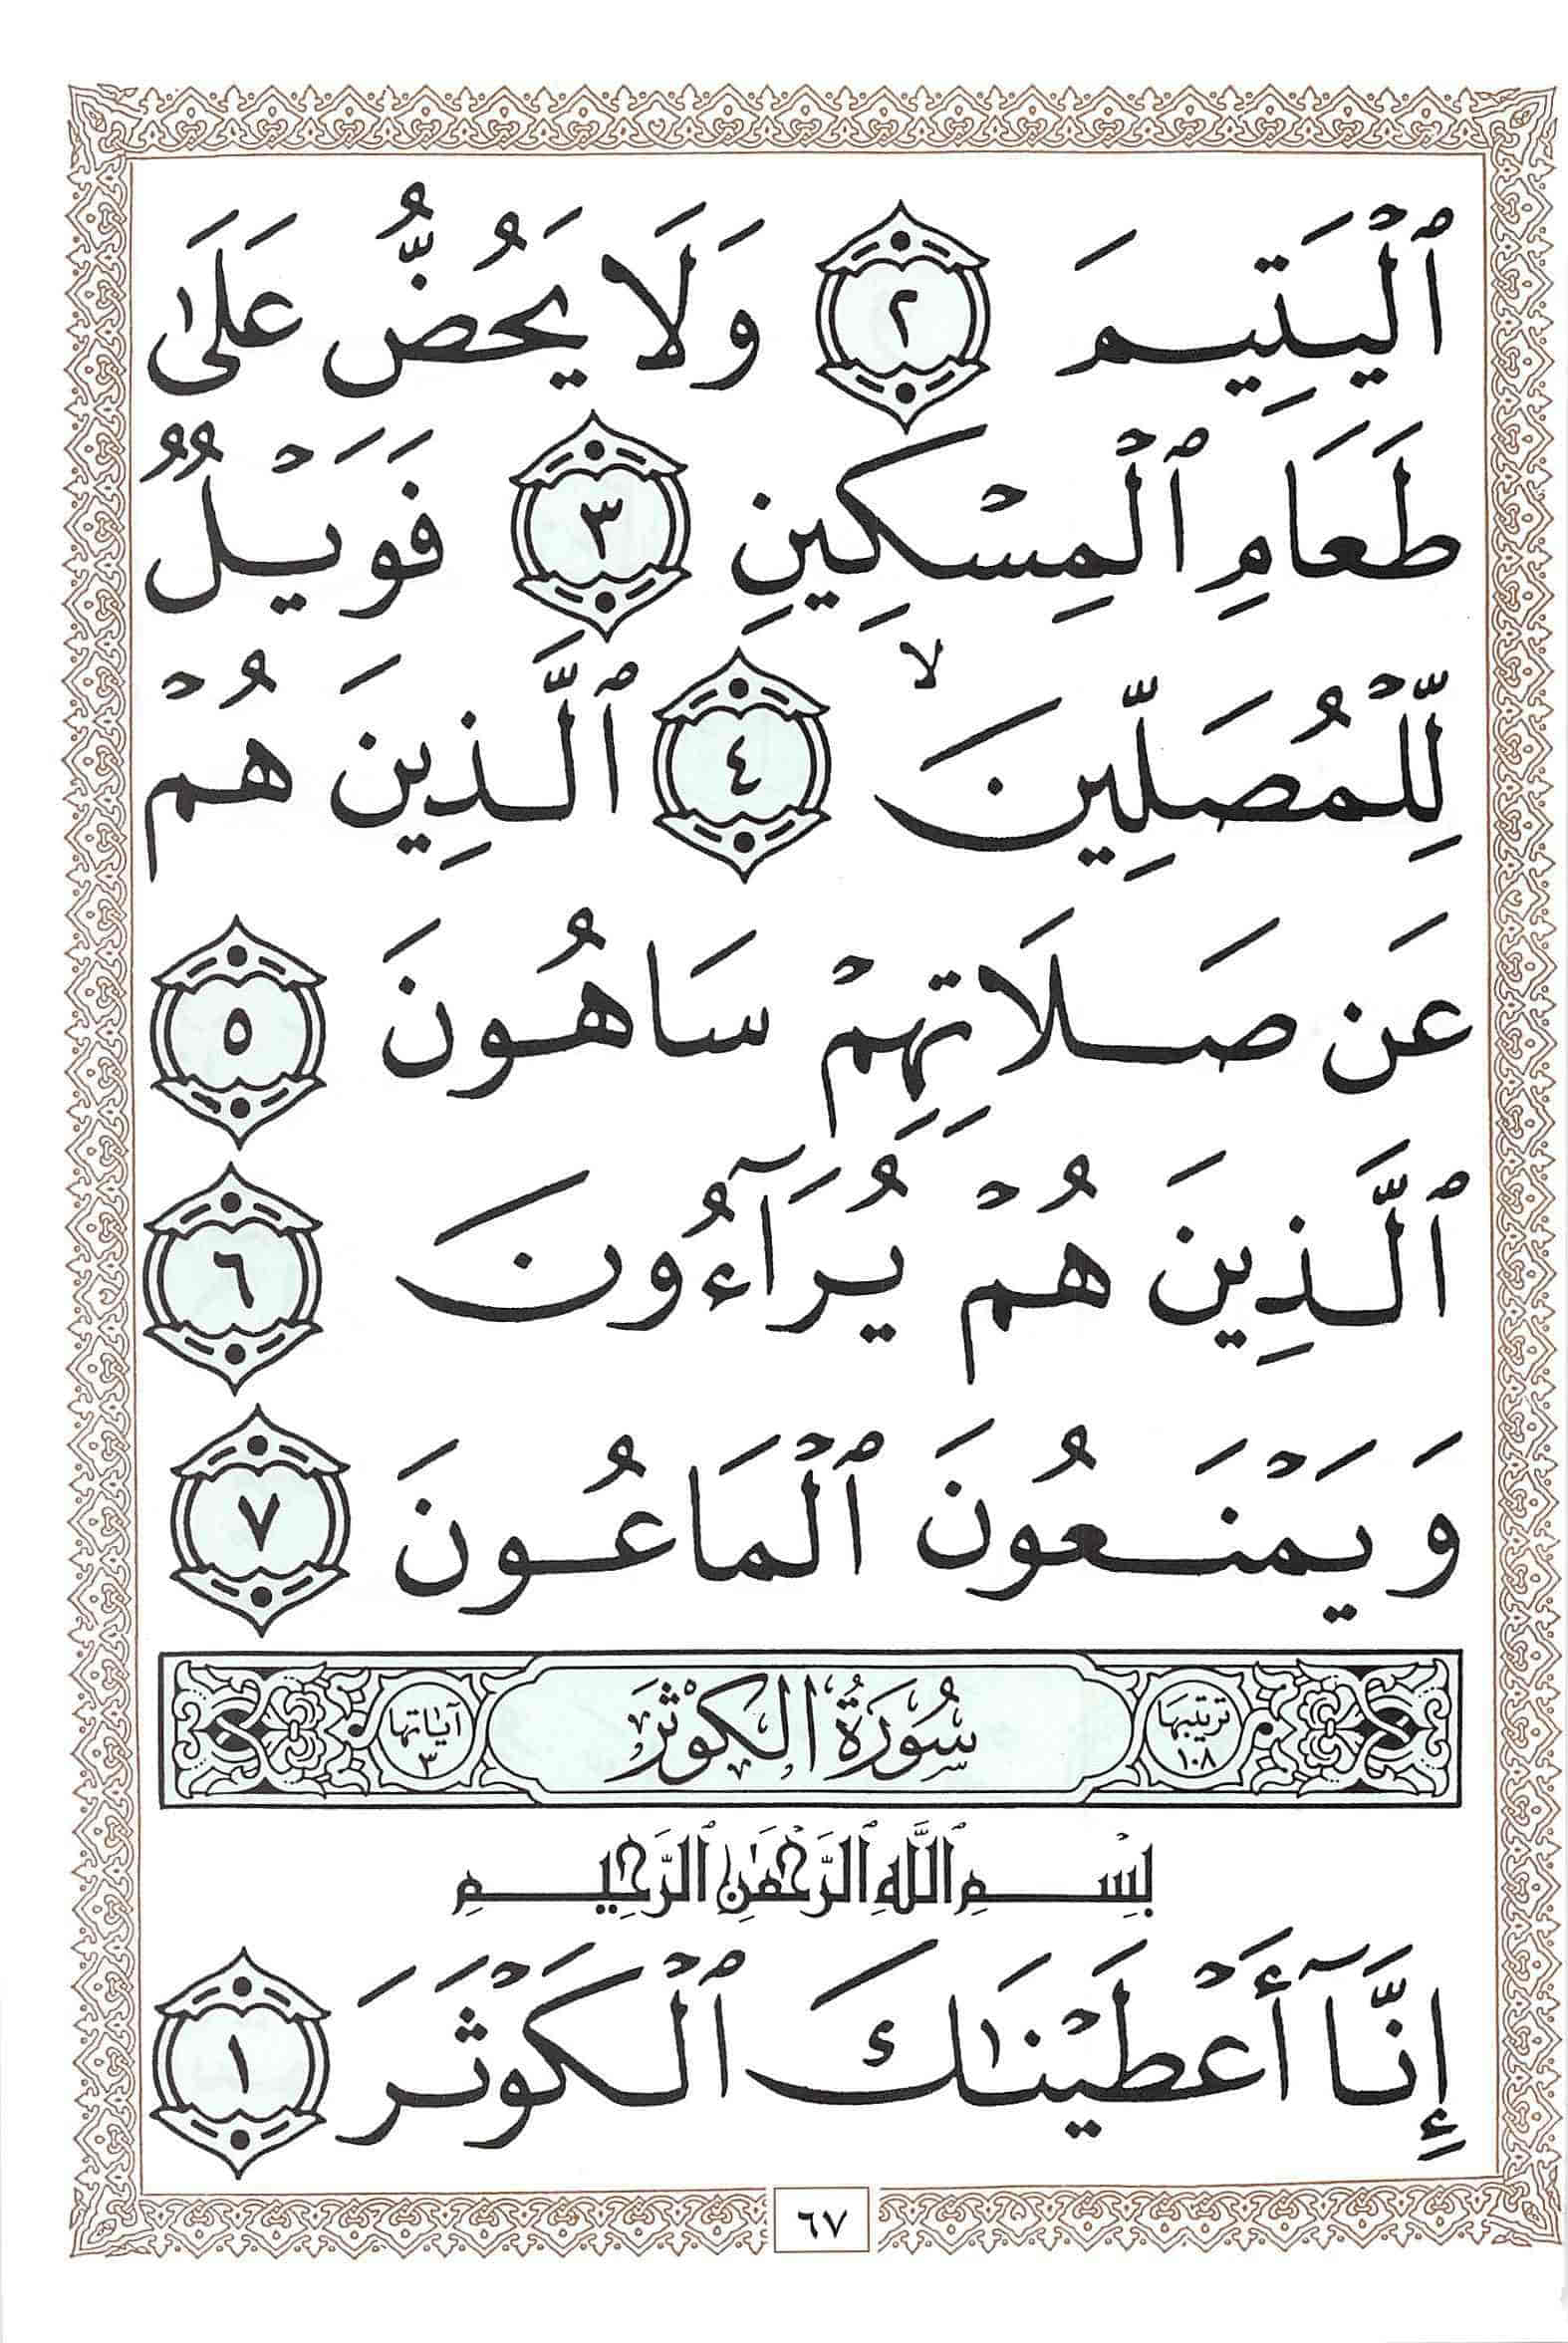 ٱلْيَتِيمَ ٢ وَلَا يَحُضُّ عَلَىٰ
طَعَامِ ٱلْمِسْكِينِ ٣ فَوَيْلٌ
لِّلْمُصَلِّينَ ۙ ٤ ٱلَّذِينَ هُمْ
عَن صَلَاتِهِمْ سَاهُونَ ٥
ٱلَّذِينَ هُمْ يُرَآءُونَ ٦
وَيَمْنَعُونَ ٱلْمَاعُونَ ٧
ترتيبها ١٠٨ سُورَةُ الكَوْثَرَ آياتها ٣
بِسْمِ ٱللَّهِ ٱلرَّحْمَٰنِ ٱلرَّحِيمِ
إِنَّآ أَعْطَيْنَٰكَ ٱلْكَوْثَرَ ١
٦٧